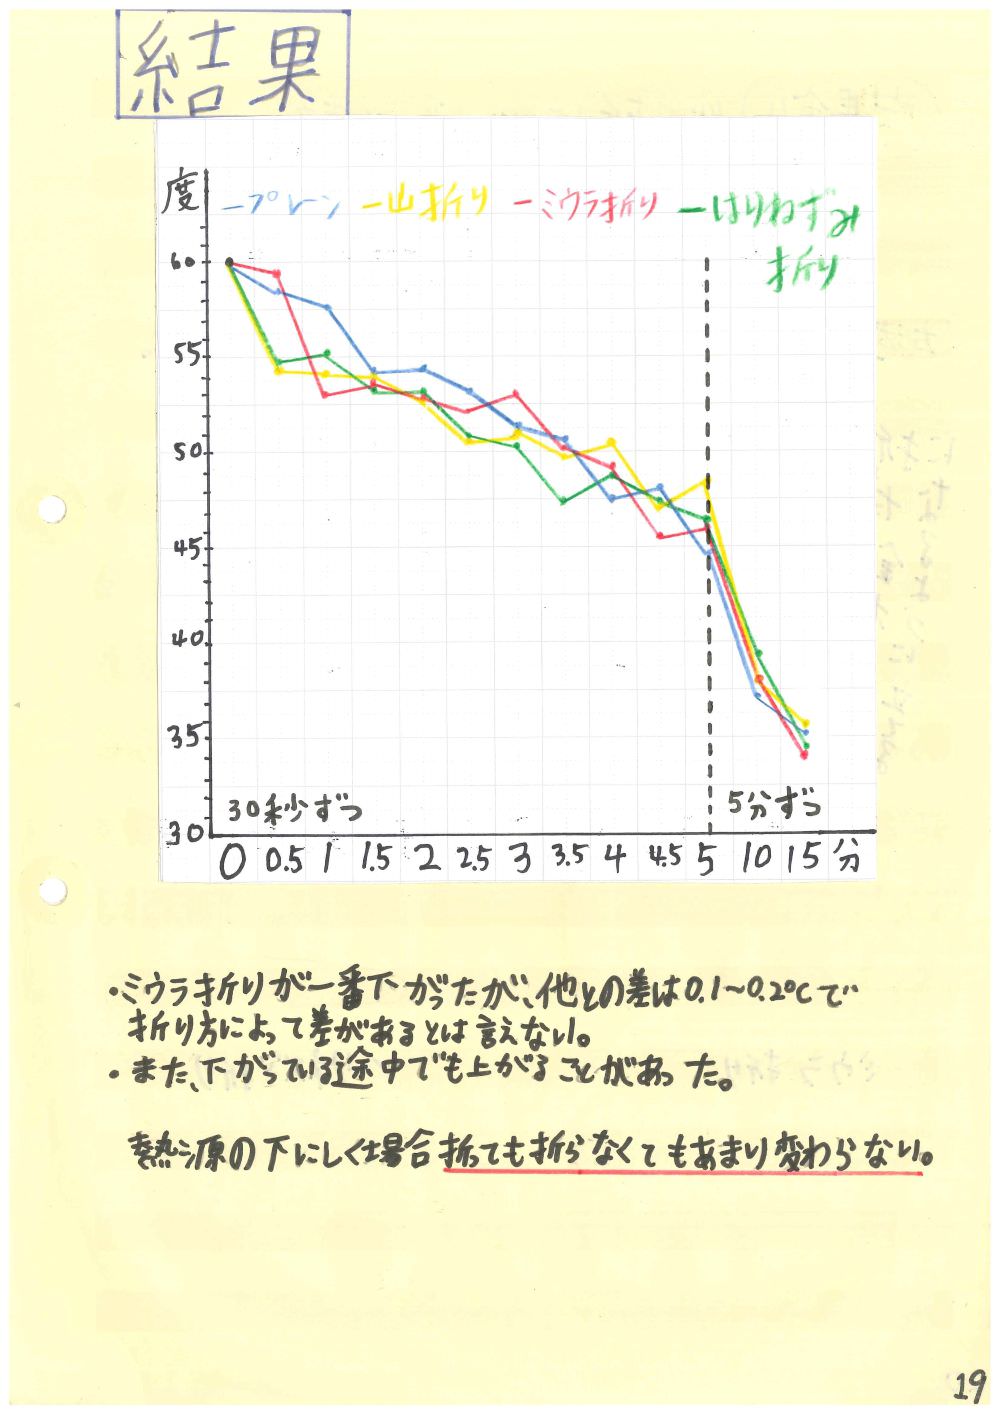 結果
度
ープレーン ー山折り ーミウラ折り ーはりねずみ
折り
60
55
50
45
40
35
30
30秒ずつ 5分ずつ
0 0.5 1 1.5 2 2.5 3 3.5 4 4.5 5 10 15 分
・ミウラ折りが一番下がったが、他との差は0.1〜0.2℃で
折り方によって差があるとは言えない。
・また、下がっている途中でも上がることがあった。
熱源の下にしく場合折っても折らなくてもあまり変わらない。
19